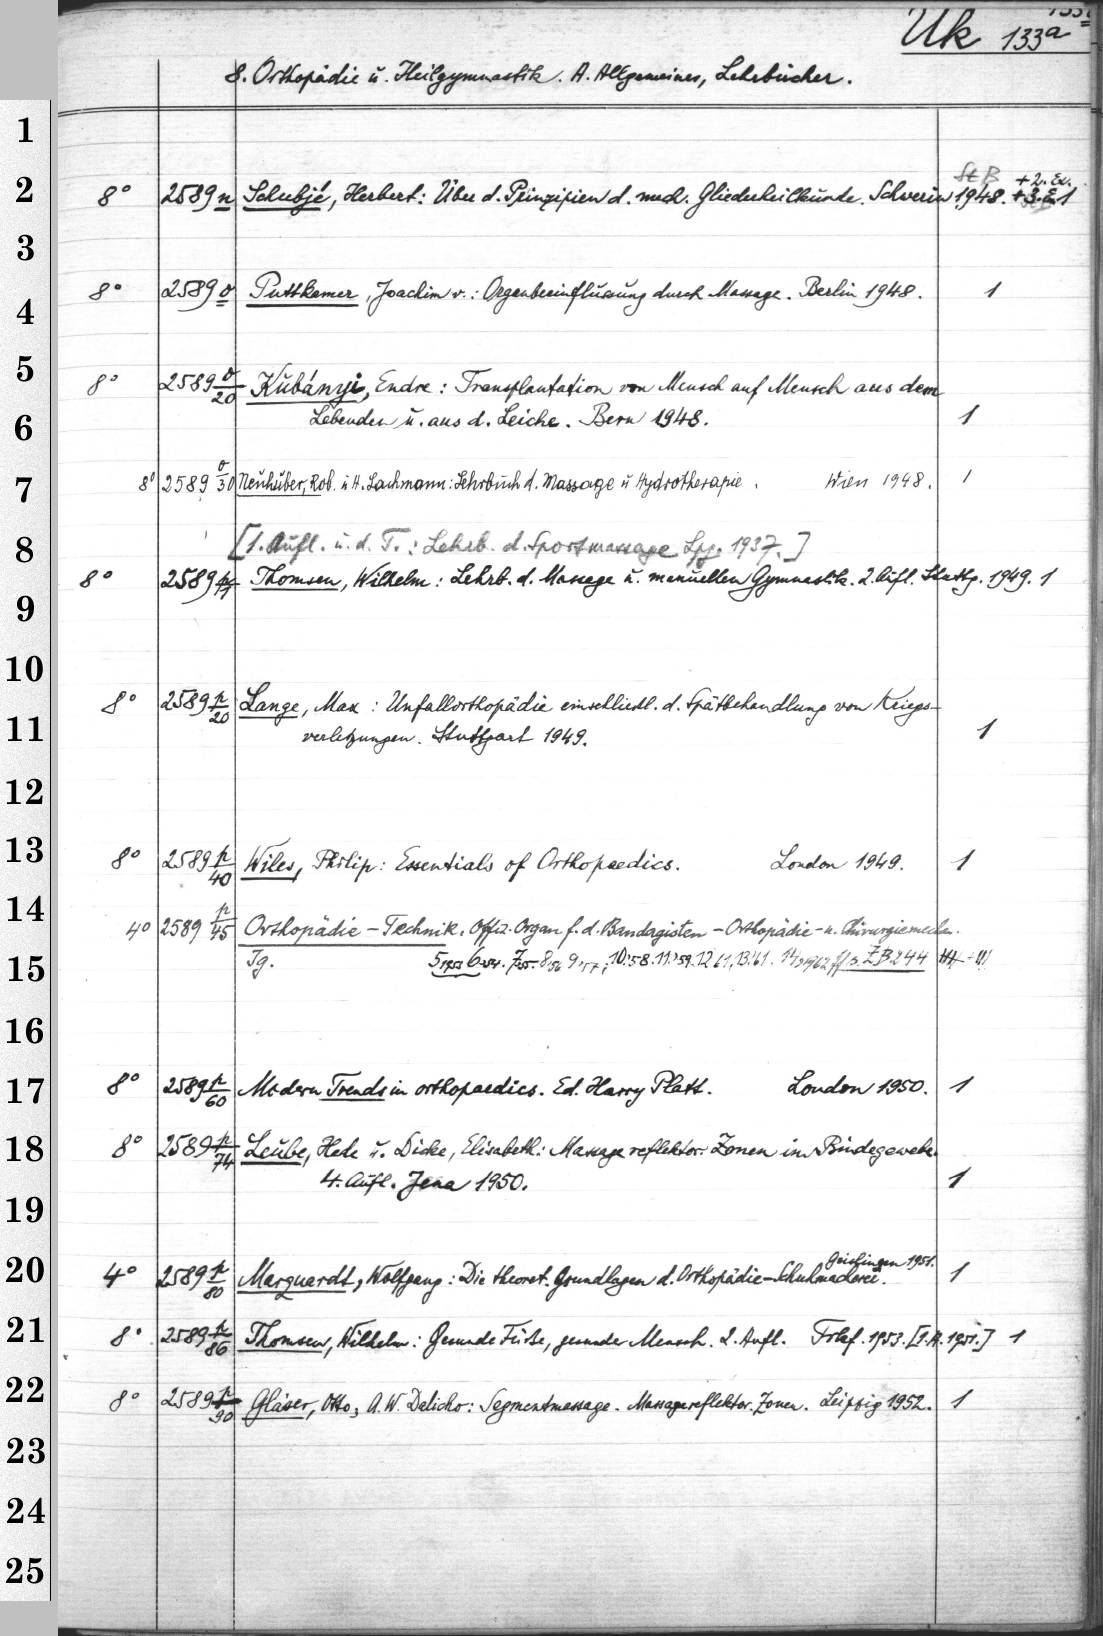 Uk 133a
8. Orthopädie u. Heilgymnastik. A. Allgemeines, Lehrbücher.
1
St B + 2. Ex.
2 8° 2589 n Schubjé, Herbert: Über d. Prinzipien d. mech. Gliederheilkunde. Schwerin 1948. 1
3
8° 2589 o Puttkamer, Joachim v.: Organbeeinflussung durch Massage. Berlin 1948. 1
4
5 8° 2589 o/20 Kubányi, Endre: Transplantation von Mensch auf Mensch aus dem
6 Lebenden u. aus d. Leiche. Bern 1948. 1
7 8° 2589 o/30 Neuhuber, Rob. u. H. Lachmann: Lehrbuch d. Massage u. Hydrotherapie. Wien 1948. 1
8 [1. Aufl. u. d. T.: Lehrb. d. Sportmassage Lpz. 1937.]
8° 2589 p Thomsen, Wilhelm: Lehrb. d. Massage u. manuellen Gymnastik. 2. Aufl. Stuttg. 1949. 1
9
10
8° 2589 p/20 Lange, Max: Unfallorthopädie einschliessl. d. Spätbehandlung von Kriegs-
11 verletzungen. Stuttgart 1949. 1
12
13 8° 2589 p/40 Wiles, Philip: Essentials of Orthopaedics. London 1949. 1
14 4° 2589 p/45 Orthopädie-Technik. Offiz. Organ f. d. Bandagisten-Orthopädie- u. Chirurgiemech.
15 Jg. 5 1953 6 54. 7 55. 8 56 9 '57, 10 '58. 11 '59. 12 61, 13 '61. 14, 1962 ff s. ZB 244
16
17 8° 2589 p/60 Modern Trends in orthopaedics. Ed. Harry Platt. London 1950. 1
18 8° 2589 p/74 Leube, Hede u. Dicke, Elisabeth: Massage reflektor. Zonen im Bindegewebe.
4. Aufl. Jena 1950. 1
19
Geislingen 1951.
20 4° 2589 p/80 Marquardt, Wolfgang: Die theoret. Grundlagen d. Orthopädie-Schuhmacherei. 1
21 8° 2589 p/86 Thomsen, Wilhelm: Gesunde Füße, gesunder Mensch. 2. Aufl. Frkf. 1953. [1. A. 1951.] 1
22 8° 2589 p/90 Gläser, Otto, A. W. Dalicho: Segmentmassage. Massage reflektor. Zonen. Leipzig 1952. 1
23
24
25